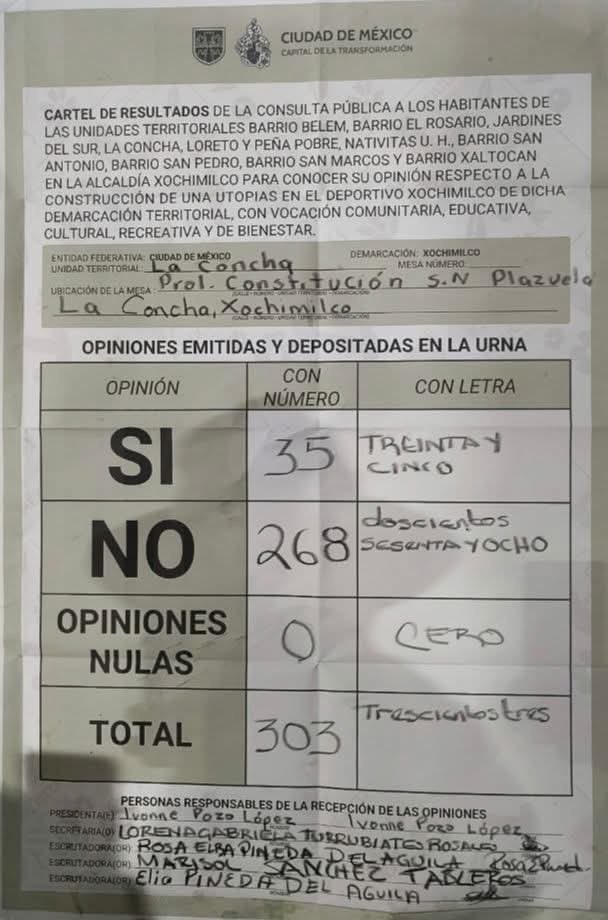 CIUDAD DE MÉXICO
CAPITAL DE LA TRANSFORMACIÓN
CARTEL DE RESULTADOS DE LA CONSULTA PÚBLICA A LOS HABITANTES DE
LAS UNIDADES TERRITORIALES BARRIO BELEM, BARRIO EL ROSARIO, JARDINES
DEL SUR, LA CONCHA, LORETO Y PEÑA POBRE, NATIVITAS U. H., BARRIO SAN
ANTONIO, BARRIO SAN PEDRO, BARRIO SAN MARCOS Y BARRIO XALTOCAN
EN LA ALCALDÍA XOCHIMILCO PARA CONOCER SU OPINIÓN RESPECTO A LA
CONSTRUCCIÓN DE UNA UTOPIAS EN EL DEPORTIVO XOCHIMILCO DE DICHA
DEMARCACIÓN TERRITORIAL, CON VOCACIÓN COMUNITARIA, EDUCATIVA,
CULTURAL, RECREATIVA Y DE BIENESTAR.
ENTIDAD FEDERATIVA: CIUDAD DE MÉXICO DEMARCACIÓN: XOCHIMILCO
UNIDAD TERRITORIAL: La Concha MESA NÚMERO:
UBICACIÓN DE LA MESA: Prol. Constitución S.N Plazuela
La Concha, Xochimilco
OPINIONES EMITIDAS Y DEPOSITADAS EN LA URNA
OPINIÓN CON NÚMERO CON LETRA
SI 35 TREINTA Y CINCO
NO 268 doscientos SESENTA Y OCHO
OPINIONES NULAS 0 CERO
TOTAL 303 Trescientos tres
PERSONAS RESPONSABLES DE LA RECEPCIÓN DE LAS OPINIONES
PRESIDENTA(E) Ivonne Pozo López Ivonne Pozo López
SECRETARIA(O) LORENA GABRIELA TURRUBIATES ROSALES
ESCRUTADORA(OR) ROSA ELBA PINEDA DEL AGUILA
ESCRUTADORA(OR) MARISOL SANCHEZ TABLEROS
ESCRUTADORA(OR) Elia PINEDA DEL AGUILA